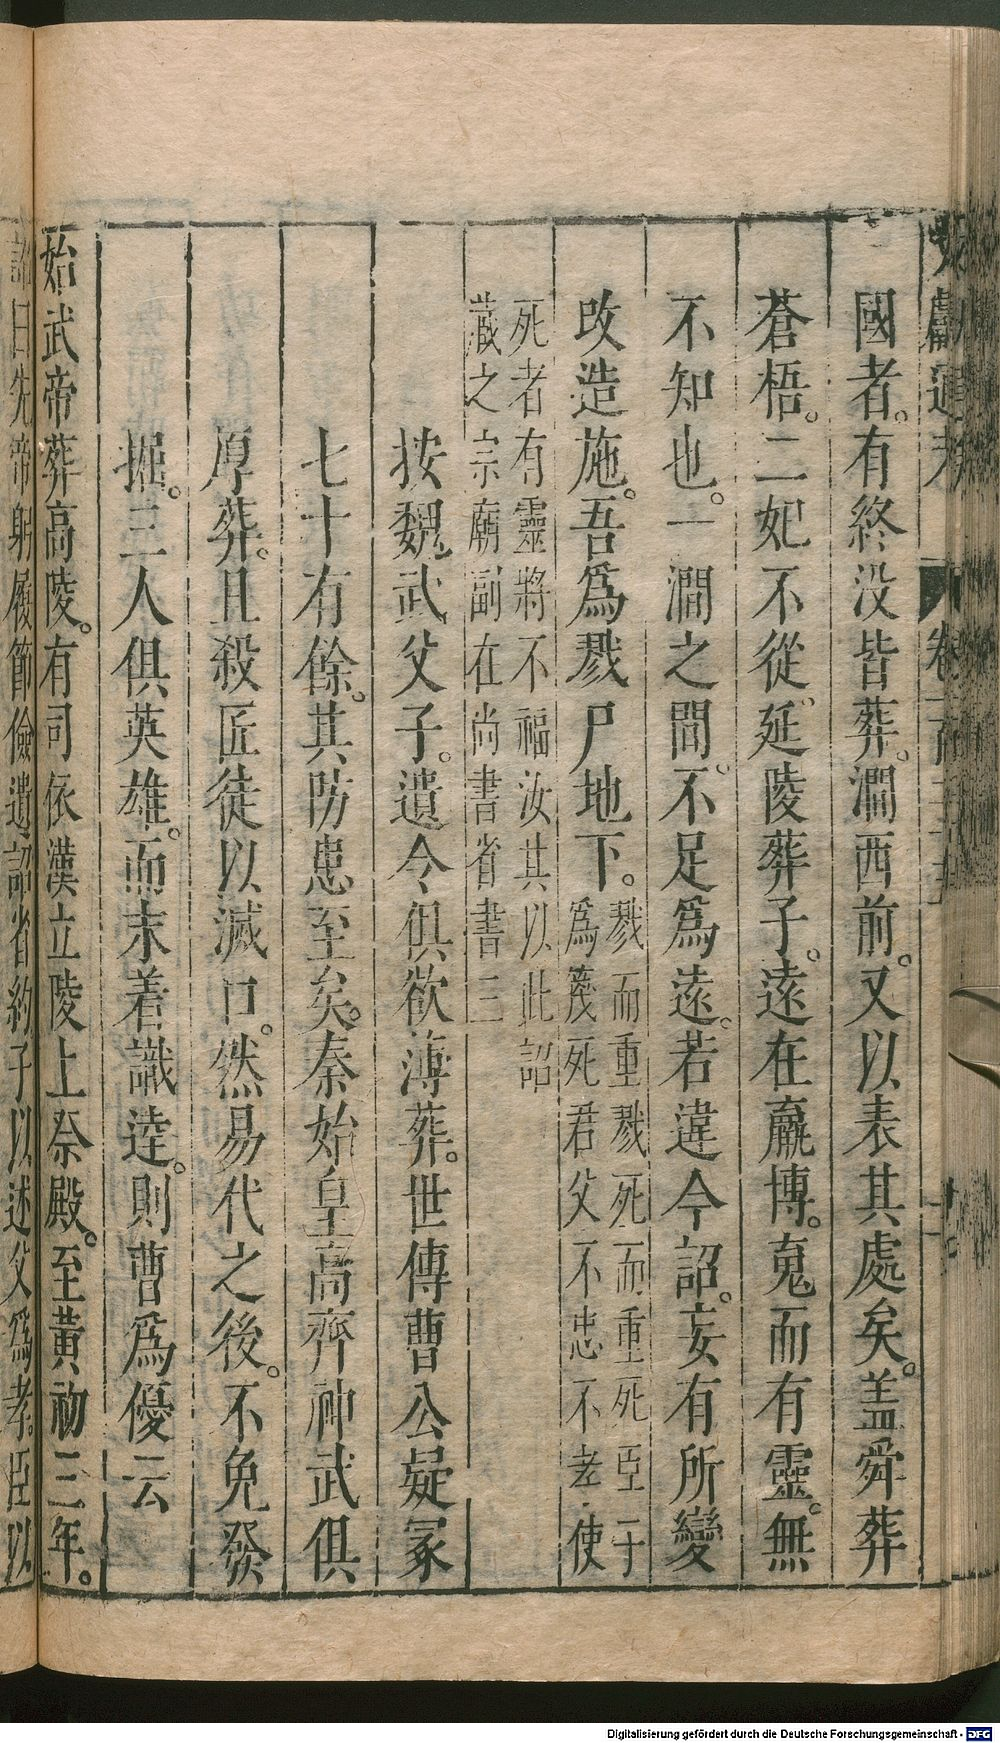 文獻通考 卷一百二十五
國者。有終没皆葬。澗西前。又以表其處矣。盖舜葬
蒼梧。二妃不從。延陵葬子。遠在嬴博。䰟而有靈。無
不知也。一澗之間。不足爲遠。若違今詔。妄有所變
改造施。吾爲戮尸地下。戮而重戮死而重死臣子
爲蔑死君父不忠不孝使
死者有靈將不福汝其以此詔
藏之宗廟副在尚書省書三
按魏武父子。遺令俱欲薄葬。世傳曹公疑冢
七十有餘。其防患至矣。秦始皇高齊神武俱
厚葬。且殺匠徒以滅口。然易代之後。不免發
掘。三人俱英雄。而末着識逵。則曹爲優云
始武帝葬高陵。有司依漢立陵上祭殿。至黃初三年。
詔曰先帝躬履節儉遺詔省約子以述父爲孝。臣以
Digitalisierung gefördert durch die Deutsche Forschungsgemeinschaft - DFG